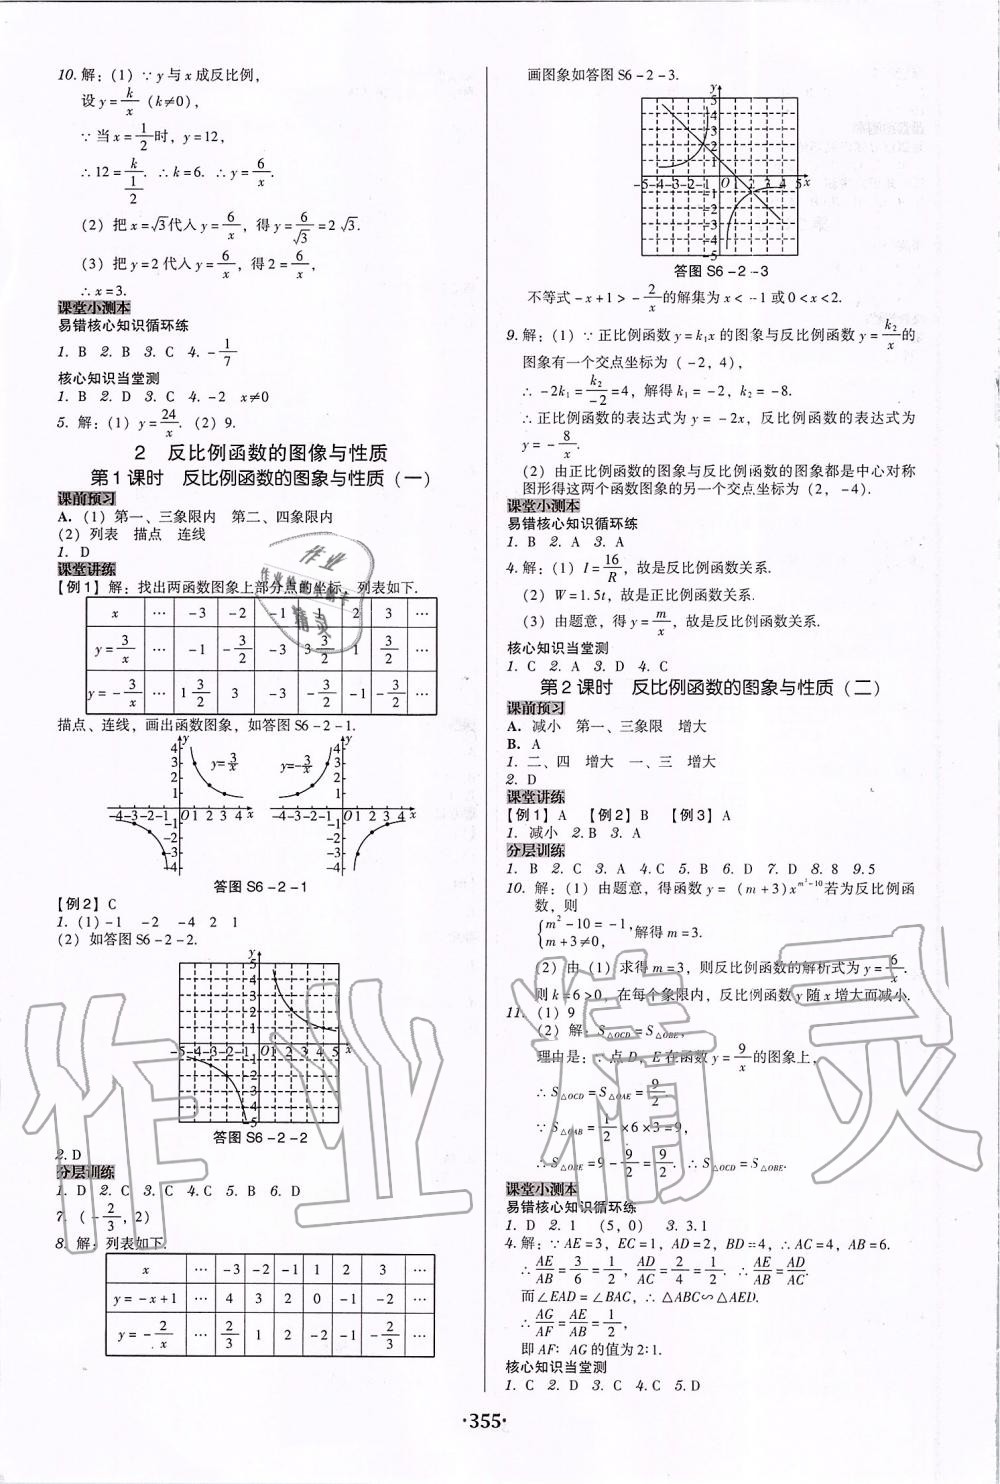 10. 解：(1) ∵ y 与 x 成反比例，
设 y = k/x (k≠0)，
∵ 当 x = 1/2 时，y = 12，
∴ 12 = k/(1/2). ∴ k = 6. ∴ y = 6/x.
(2) 把 x = √3 代入 y = 6/x，得 y = 6/√3 = 2√3.
(3) 把 y = 2 代入 y = 6/x，得 2 = 6/x，
∴ x = 3.
课堂小测本
易错核心知识循环练
1. B 2. B 3. C 4. -1/7
核心知识当堂测
1. B 2. D 3. C 4. -2 x≠0
5. 解：(1) y = 24/x. (2) 9.
2 反比例函数的图像与性质
第1课时 反比例函数的图象与性质（一）
课前预习
A. (1) 第一、三象限内 第二、四象限内
(2) 列表 描点 连线
1. D
课堂讲练
【例1】解：找出两函数图象上部分点的坐标，列表如下.
x … -3 -2 -1 1 2 3 …
y = 3/x … -1 -3/2 -3 3 3/2 1 3/2 …
y = -3/x … 1 3/2 3 -3 -3/2 -1 -3/2 …
描点、连线，画出函数图象，如答图S6-2-1.
答图S6-2-1
【例2】C
1. (1) -1 -2 -4 2 1
(2) 如答图S6-2-2.
答图S6-2-2
2. D
分层训练
1. D 2. C 3. C 4. C 5. B 6. D
7. (-2/3, 2)
8. 解：列表如下.
x … -3 -2 -1 1 2 3 …
y = -x+1 … 4 3 2 0 -1 -2 …
y = -2/x … 2/3 1 2 -2 -1 -2/3 …
画图象如答图S6-2-3.
答图S6-2-3
不等式 -x+1 > -2/x 的解集为 x < -1 或 0 < x < 2.
9. 解：(1) ∵ 正比例函数 y = k₁x 的图象与反比例函数 y = k₂/x 的
图象有一个交点坐标为 (-2, 4)，
∴ -2k₁ = k₂/-2 = 4，解得 k₁ = -2，k₂ = -8.
∴ 正比例函数的表达式为 y = -2x，反比例函数的表达式为
y = -8/x.
(2) 由正比例函数的图象与反比例函数的图象都是中心对称
图形得这两个函数图象的另一个交点坐标为 (2, -4).
课堂小测本
易错核心知识循环练
1. B 2. A 3. A
4. 解：(1) I = 16/R，故是反比例函数关系.
(2) W = 1.5t，故是正比例函数关系.
(3) 由题意，得 y = m/x，故是反比例函数关系.
核心知识当堂测
1. C 2. A 3. D 4. C
第2课时 反比例函数的图象与性质（二）
课前预习
A. 减小 第一、三象限 增大
B. A
1. 二、四 增大 一、三 增大
2. D
课堂讲练
【例1】A 【例2】B 【例3】A
1. 减小 2. B 3. A
分层训练
1. B 2. C 3. A 4. C 5. B 6. D 7. D 8. 8 9. 5
10. 解：(1) 由题意，得函数 y = (m+3)x^(m²-10) 若为反比例函
数，则
{m² - 10 = -1, m + 3 ≠ 0, 解得 m = 3.
(2) 由 (1) 求得 m = 3，则反比例函数的解析式为 y = 6/x.
则 k = 6 > 0，在每个象限内，反比例函数 y 随 x 增大而减小.
11. (1) 9
(2) 解：S△OCD = S△OBE，
理由是：∵ 点 D，E 在函数 y = 9/x 的图象上，
∴ S△OCD = S△OAE = 9/2.
∵ S△OAB = 1/2 × 6 × 3 = 9，
∴ S△OBE = 9 - 9/2 = 9/2. ∴ S△OCD = S△OBE.
课堂小测本
易错核心知识循环练
1. D 2. 1 (5, 0) 3. 3.1
4. 解：∵ AE = 3，EC = 1，AD = 2，BD = 4，∴ AC = 4，AB = 6.
∴ AE/AB = 3/6 = 1/2，AD/AC = 2/4 = 1/2. ∴ AE/AB = AD/AC.
而∠EAD = ∠BAC，∴ △ABC∽△AED.
∴ AG/AF = AE/AB = 1/2，
即 AF：AG 的值为 2：1.
核心知识当堂测
1. C 2. D 3. C 4. C 5. D
·355·
作业精灵